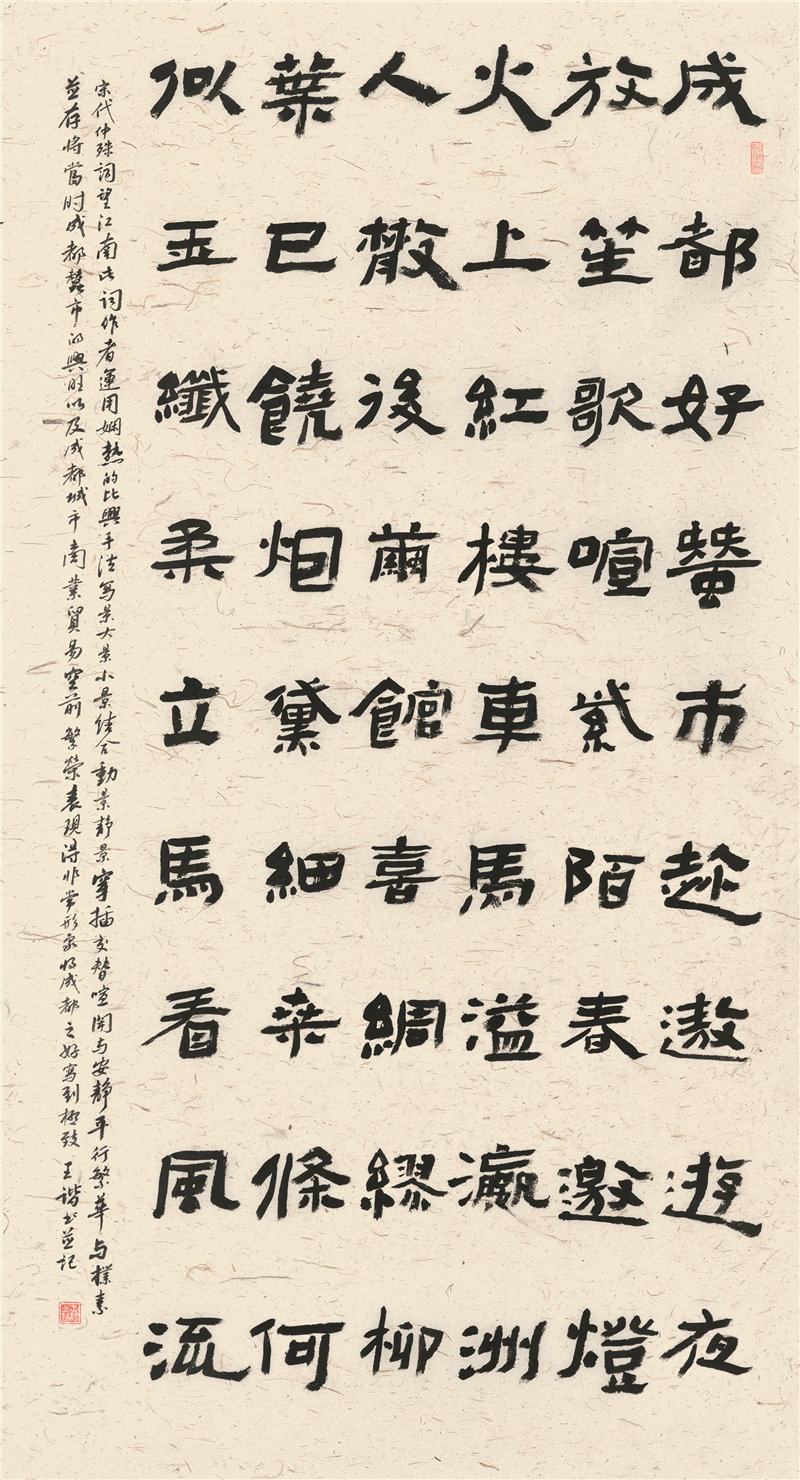 成都好蠶市趁遨遊夜
放笙歌喧紫陌春邀燈
火上紅樓車馬溢瀛洲
人散後繭館喜綢繆柳
葉已饒炬黛細桒條何
似玉纖柔立馬看風流
宋代仲殊词望江南此词作者運用娴熟的比興手法写景大景小景结合動景静景穿插交替喧闹与安静平行繁华与樸素
並存将當时成都蠶市的興旺以及成都城市商業貿易空前繁荣表現得非常形象将成都之好寫到極致 王谐书並记